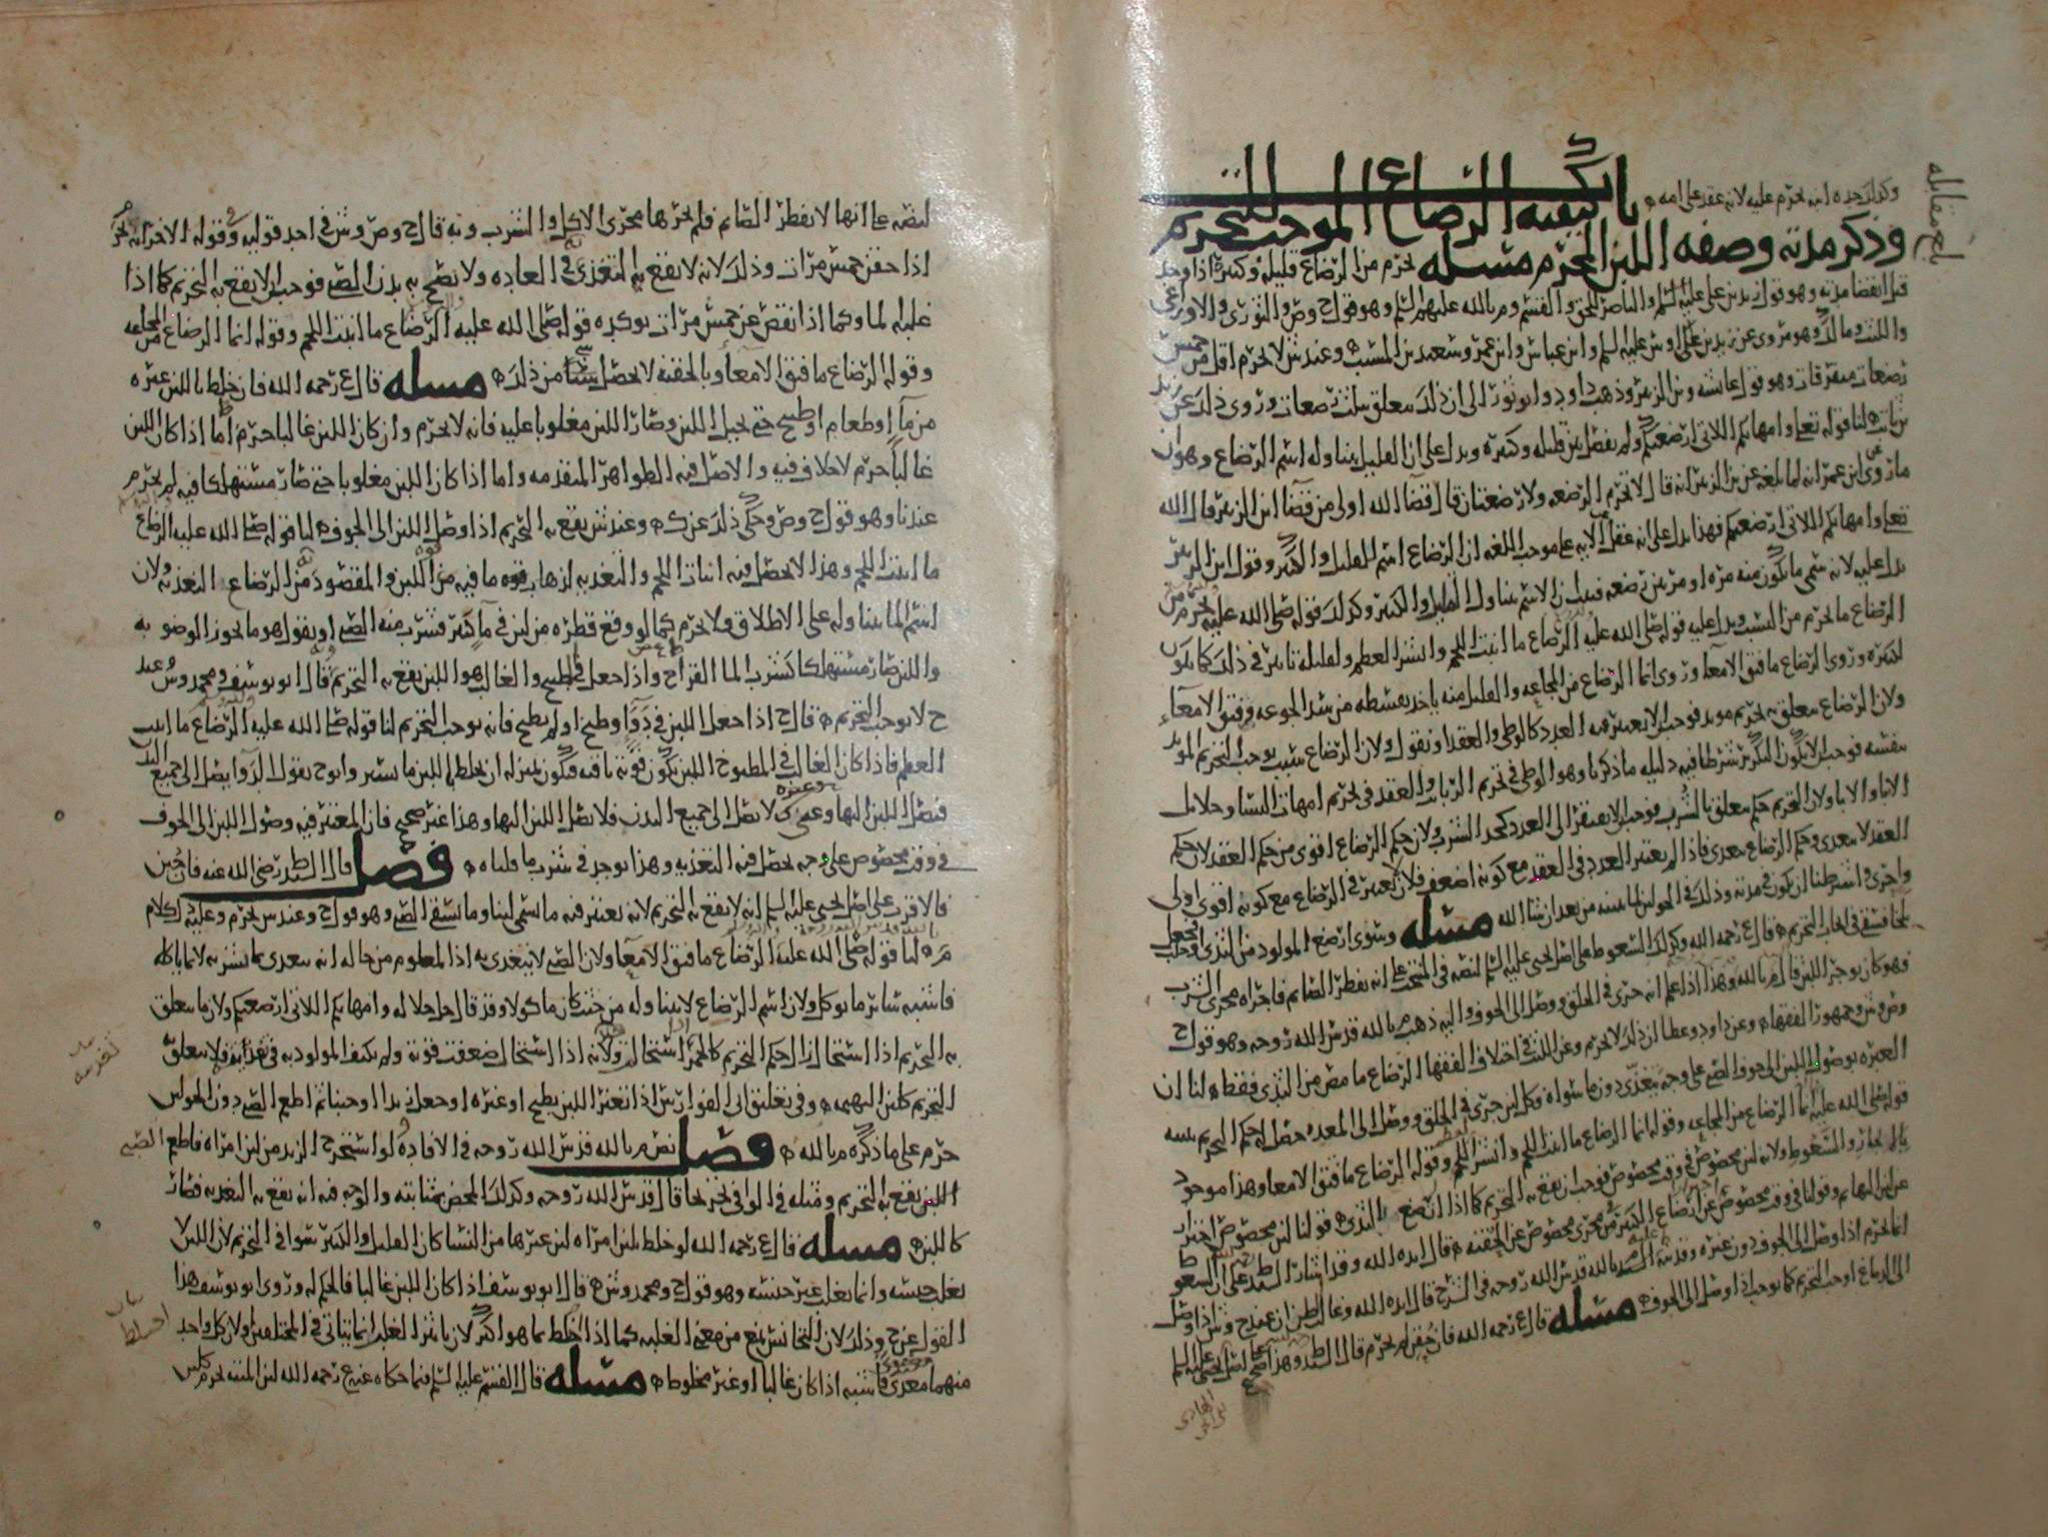 وكذلك جده ابنه يحرم عليه لانه عقد على امه
باب كيفيه الرضاع الموجب للتحريم
وذكر مدته وصفه اللبن المحرم مسله يحرم من الرضاع قليله وكثيره اذا وجد
قبل انقضا مدته وهو قول زيد بن على عليه السلم والناصر للحق والقسم وم بالله عليهم السلم وهو قول ح وص والثورى والاوزاعى
والليث ومالك وهو مروى عن زيد بن على عليه السلم وابن عباس وابن عمر وسعيد بن المسيب وعند ش لا يحرم اقل من خمس
رضعات متفرقات وهو قول عائشه وبن الزبير وذهب داود وابو ثور الى ان ذلك يتعلق بثلث رضعات وروى ذلك عن زيد
بن ثابت لنا قوله تعلى وامهاتكم اللاتى ارضعنكم ولم يفصل بين قليله وكثيره ويدل على ان القليل يتناوله اسم الرضاع وهو ان
ما روى عن ابن عمر انه لما بلغه عن بن الزبير انه قال لا تحرم الرضعه ولا رضعتان قال قضا الله اولى من قضا ابن الزبير قال الله
تعلى وامهاتكم اللاتى ارضعنكم فهذا يدل على انه عقل الايه على موجب اللغه ان الرضاع اسم للقليل والكثير وقول ابن الزبير
يدل عليه لانه سمى ما يكون منه مره او مرتين رضعه فبان ان الاسم يتناول القليل والكثير وكذلك قوله صلى الله عليه يحرم من
الرضاع ما يحرم من النسب ويدل عليه قوله صلى الله عليه الرضاع ما انبت اللحم وانشز العظم ولقليله تاثير فى ذلك كما يكون
لكثيره وروى الرضاع ما فتق الامعا وروى انما الرضاع من المجاعه والقليل منه ياخذ بقسطه من سد الجوعه وفتق الامعاء
ولان الرضاع يتعلق به تحريم موبد فوجب ان لا يعتبر فيه العدد كالوطى والعقد او نقول ولان الرضاع سبب يوجب التحريم الموبد
بنفسه فوجب ان لا يكون التكرير شرطا فيه دليله ما ذكرنا وهو الوطى فى تحريم الربايب والعقد فى تحريم امهات النسا وحلائل
الابا والابنا ولان التحريم حكم يتعلق بالشرب فوجب ان لا يفتقر الى العدد كحد الشرب ولان حكم الرضاع اقوى من حكم العقد لان حكم
العقد لا يتعدى وحكم الرضاع يتعدى فاذا لم يعتبر العدد فى العقد مع كونه اضعف فلان لا يعتبر فى الرضاع مع كونه اقوى اولى
واحرى واشترطنا ان يكون فى مدته وذلك فى الحولين لما نبينه من بعد ان شا الله مسله وسوى ارضع المولود من الثدى او حلب
فى ايجاب التحريم قال ع رحمه الله وكذلك السعوط على اصل يحيى عليه السلم لنصه فى المنتخب على انه يفطر الصائم فاجراه مجرى الشرب
فهو كان يوجر اللبن قال م بالله وهذا اذا علم انه جرى فى الحلق ووصل الى الجوف واليه ذهب م بالله قدس الله روحه وهو قول ح
وص وش وجمهور الفقها وعن داود وعطا ان ذلك لا يحرم وعن الليث فى اختلاف الفقها الرضاع ما مص من الثدى فقط لنا ان
العبره بوصول اللبن الى جوف الصبى على وجه يغذى دون ما سواه فكل لبن جرى فى الحلق ووصل الى المعده حصل له حكم التحريم يبينه
قوله صلى الله عليه انما الرضاع من المجاعه وقوله انما الرضاع ما انبت اللحم وانشز العظم وقوله الرضاع ما فتق الامعا وهذا موجود
بالايجار والسعوط ولانه لبن مخصوص فى وقت مخصوص فوجب ان يقع به التحريم كما اذا ارتضع بالثدى قولنا لبن مخصوص احتراز
عن لبن البهائم وقولنا فى وقت مخصوص عن رضاع الكبير ومن مجرى مخصوص عن الحقنه م قال ايده الله وقد اشار السيد ط على ان السعوط
انما يحرم اذا وصل الى الجوف دون غيره وقد نبه السيد م بالله قدس الله روحه فى الشرح قال ايده الله وغالب الظن ان عند ح وش اذا وصل
الى الدماغ اوجب التحريم كما يوجب اذا وصل الى الجوف مسله قال ع رحمه الله فان حقن لم يحرم قال السيد ط وهذا صحيح على اصل يحيى عليه السلم
بلغ مقابله
لنصه على انها لا تفطر الصائم فلم يجرها مجرى الاكل والشرب وبه قال ح وص وش فى احد قوليه وقوله الاخر انه يحرم
اذا حقن خمس مرات وذلك لانه لا يقع به التغذى فى العاده ولا يصلح به بدن الصبى فوجب ان لا يقع به التحريم كما اذا
غلبه الما وكما اذا نقص عن خمس مرات يوكده قوله صلى الله عليه الرضاع ما انبت اللحم وقوله انما الرضاع من المجاعه
وقوله الرضاع ما فتق الامعا وبالحقنه لا يحصل شى من ذلك مسله قال ع رحمه الله فان خلط باللبن غيره
من ما او طعام او طبخ حتى يحيل اللبن وصار اللبن مغلوبا عليه فانه لا يحرم وان كان اللبن غالبا حرم اما اذا كان اللبن
غالبا حرم لا خلاف فيه والاصل فيه الظواهر المتقدمه واما اذا كان اللبن مغلوبا حتى صار مستهلكا فيه لم يحرم
عندنا وهو قول ح وص وحكى ذلك عن ك وعند ش يقع به التحريم اذا وصل اللبن الى الجوف لنا قوله صلى الله عليه الرضاع
ما انبت اللحم وهذا لا يحصل فيه انبات اللحم والتغذيه لذهاب قوه ما فيه من اللبن والمقصود من الرضاع التغذيه ولان
اسم الما يتناوله على الاطلاق ولا يحرم كما لو وقع قطره من لبن فى ما كثير فشرب منه الصبى او نقول هو ما يجوز الوضو به
واللبن صار مستهلكا كشرب الما القراح واذا جعل فى طبيخ والغالب هو اللبن يقع به التحريم قال ابو يوسف ومحمد وش وعند
ح لا يوجب التحريم قال ح اذا جعل اللبن فى دوا وطبخ او لم يطبخ فانه يوجب التحريم لنا قوله صلى الله عليه الرضاع ما انبت
العظم فاذا كان الغالب فى المطبوخ اللبن تكون قوته باقيه فيكون بمنزله ان يخلط باللبن ما يسير وابو ح يقول الدوا يصل الى جميع البدن
فيصل اللبن اليها وغيره لا يصل الى جميع البدن فلا يصل اللبن اليها وهذا غير صحيح فان المعتبر فيه وصول اللبن الى الجوف
فى وقت مخصوص على وجه يحصل فيه التغذيه وهذا يوجد فى شرب ما قلناه فصل قال السيد ط رضى الله عنه فان جبن
فالاقرب على اصل يحيى عليه السلم انه لا يقع به التحريم لانه يعتبر فيه ما يسمى لبنا وما يسقى الصبى وهو قول ح وعند ش يحرم وعليه دل كلام
م بالله لنا قوله صلى الله عليه الرضاع ما فتق الامعا ولان الصبى لا يتغذى به اذا المعلوم من حاله انه يتغدى بما يشربه لا بما ياكله
فاشبه سائر ما يوكل ولان اسم الرضاع لا يتناوله من حيث كان ماكولا وقد قال جل جلاله وامهاتكم اللاتى ارضعنكم ولان ما يتعلق
به التحريم اذا استحال زال حكم التحريم كالخمر اذا استحال ولانه اذا استحال ضعفت قوته ولم يكتف المولود به فى تغذيته فلا يتعلق به
التحريم كلبن البهيمه وفى تعليق ابن ابى الفوارس اذا تغير اللبن بطبخ او غيره او جعل زبدا او جبنا ثم اطعم الصبى دون الحولين
حرم على ما ذكره م بالله فصل نص م بالله قدس الله روحه فى الافاده لو استخرج الزبد من لبن امراه فاطعم الصبى
اللبن يقع به التحريم ومثله فى الوافى تخريجا قال قدس الله روحه وكذلك المخيض بمثابته والوجه فيه انه يقع به التغذيه فصار
كاللبن مسله قال ع رحمه الله لو خلط بلبن امراه لبن غيرها من النسا كان القليل والكثير سوا فى التحريم لان اللبن لا
يغلب جنسه وانما يغلب غير جنسه وهو قول ح ومحمد وش قال ابو يوسف اذا كان اللبن غالبا فالحكم له وروى ابو يوسف هذا
القول عن ح وذلك لان التجانس يمنع من معنى الغلبه كما اذا خلط بما هو اكثر لان تاثير الغلبه انما يتاتى فى المختلفين ولان كل واحد
منهما مغذى فاشبه اذا كان غالبا او غير مخلوط مسله قال القسم عليه السلم فيما حكاه عنه ع رحمه الله لبن الميته يحرم كلبن